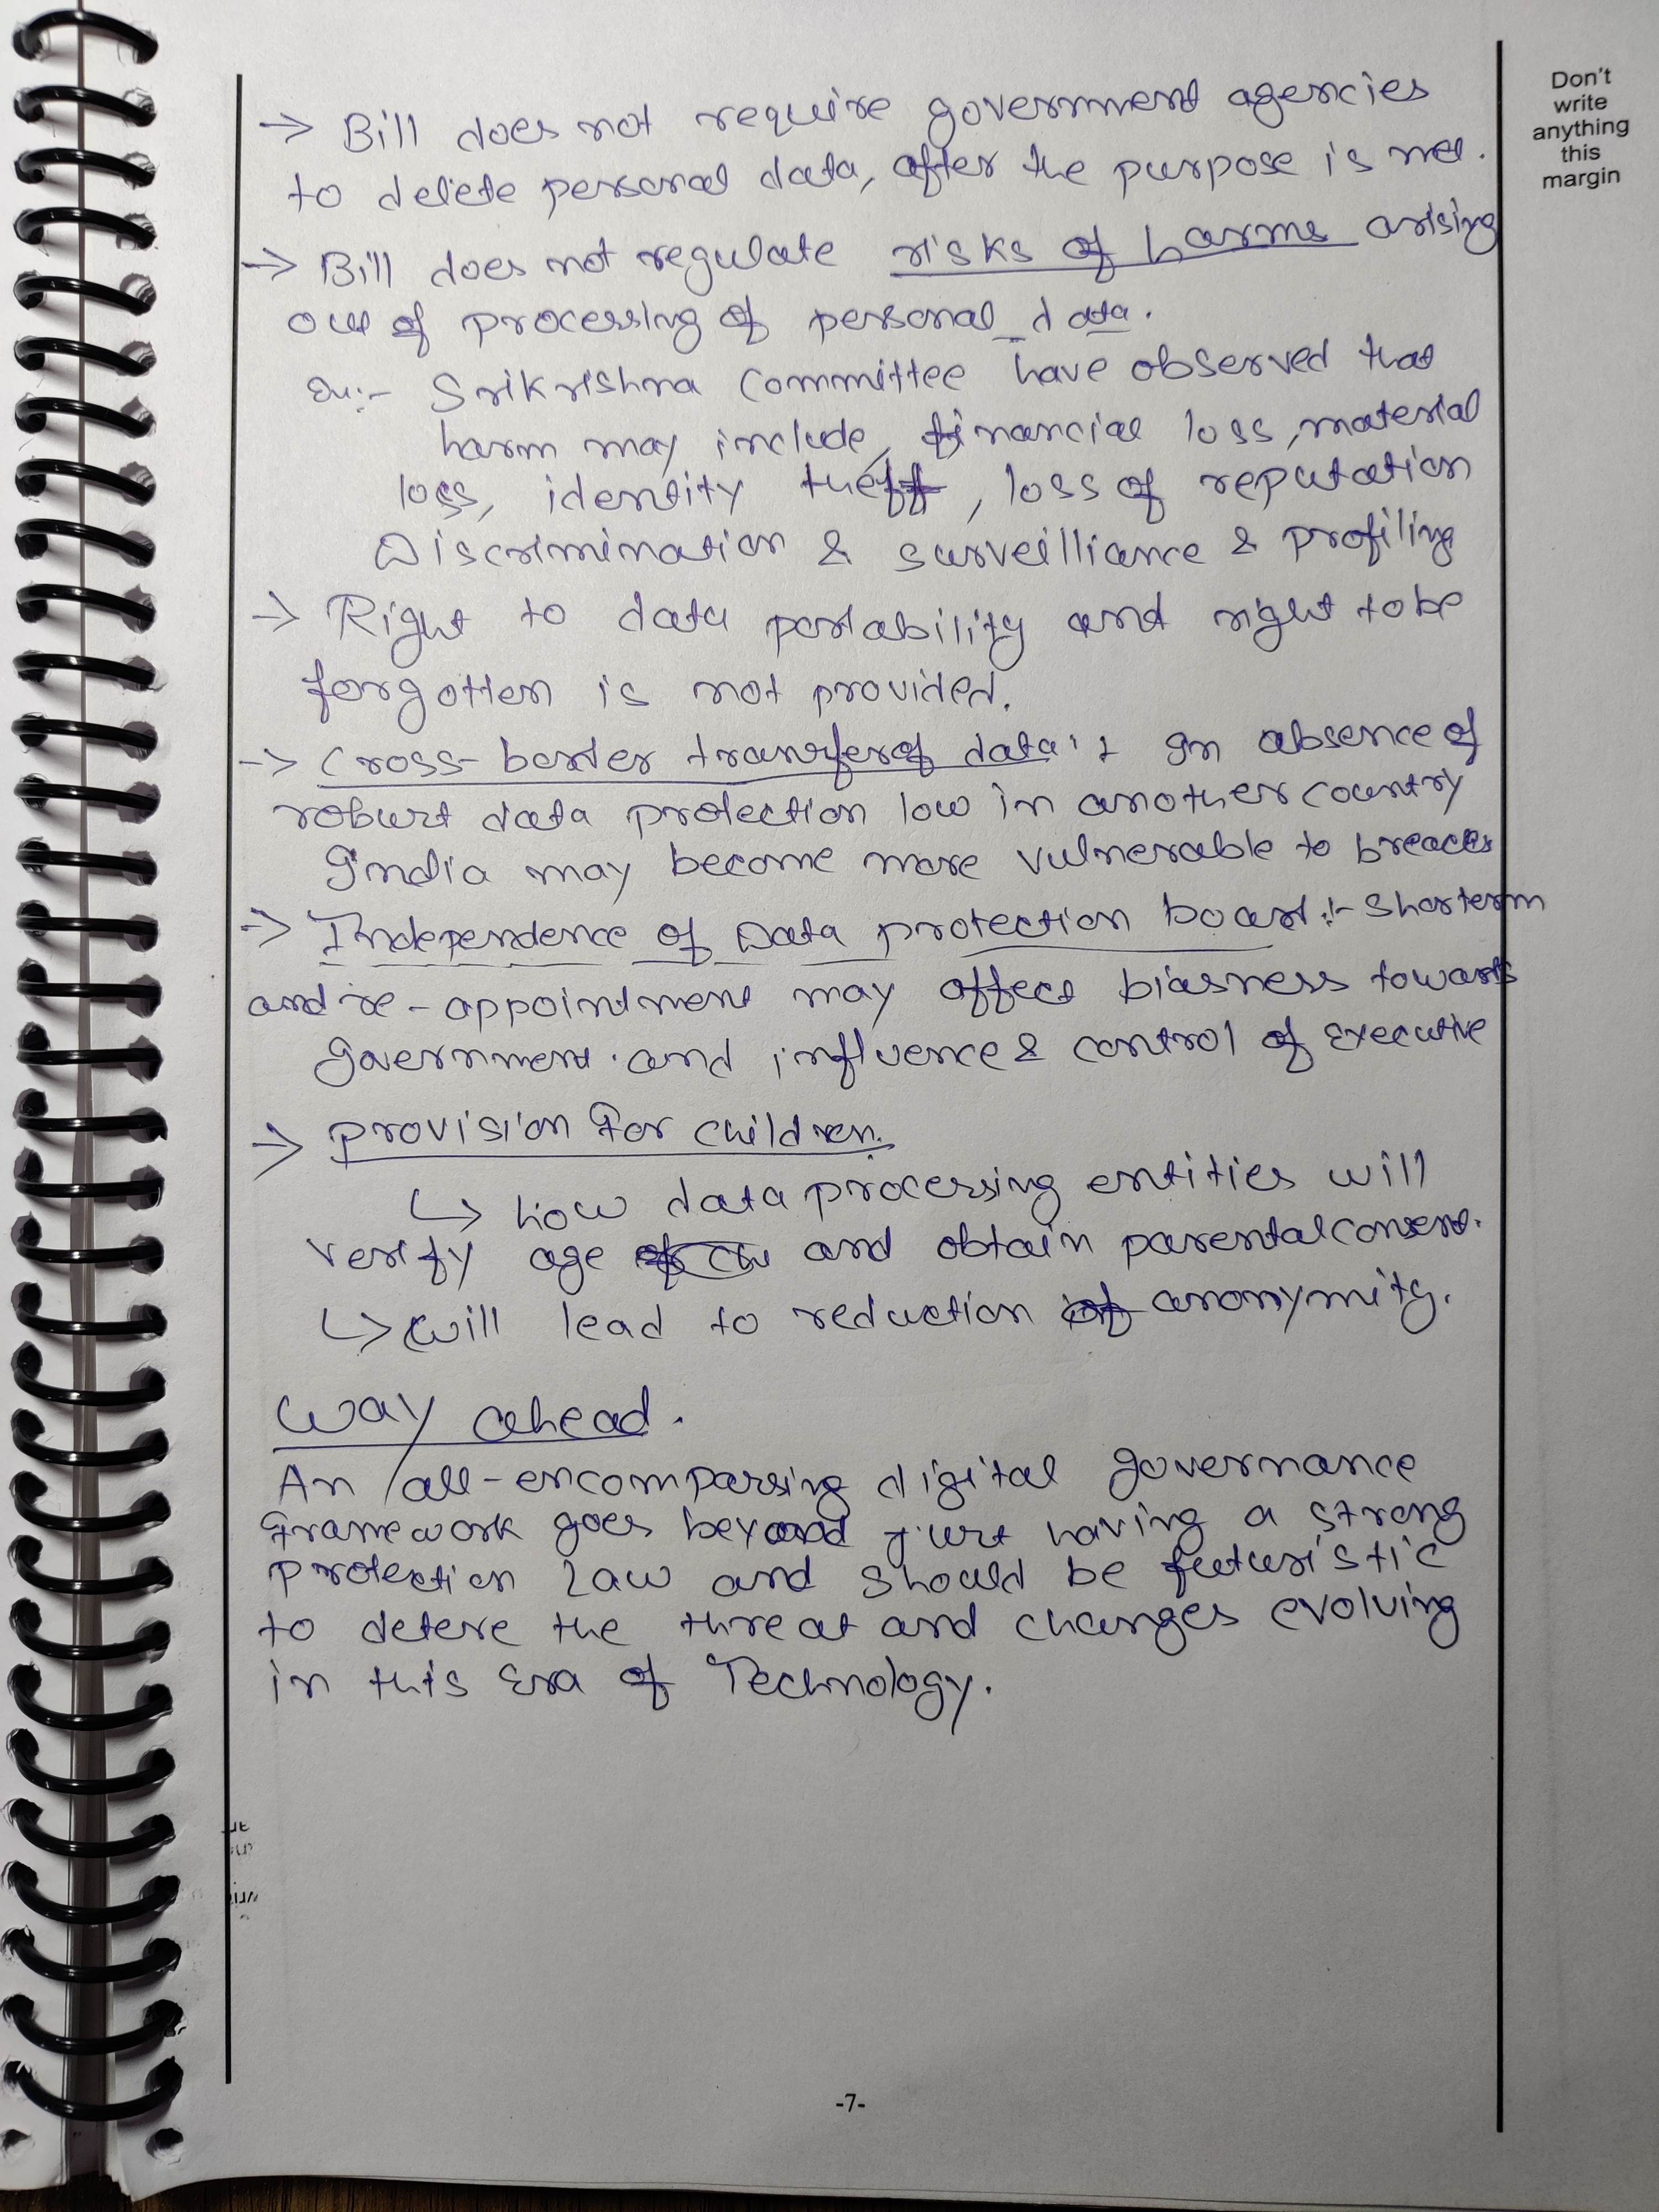 Don't
write
anything
this
margin
-> Bill does not require government agencies
to delete personal data, after the purpose is met.
-> Bill does not regulate risks of harms arising
out of processing of personal data.
Ex:- Srikrishna Committee have observed that
harm may include, financial loss, material
loss, identity theft, loss of reputation
Discrimination & surveilliance & profiling
-> Right to data portability and right to be
forgotten is not provided.
-> Cross-border transfer of data :- In absence of
robust data protection low in another country
India may become more vulnerable to breaches
-> Independence of Data protection board :- Shorterm
and re-appointment may affect biasness towards
government. and influence & control of Executive
-> provision for children.
↳ how data processing entities will
verify age and obtain parental consent.
↳ will lead to reduction of anonymity.
Way ahead.
An all-encompassing digital governance
framework goes beyond just having a strong
protection Law and should be futuristic
to detere the threat and changes evolving
in this Era of Technology.
-7-